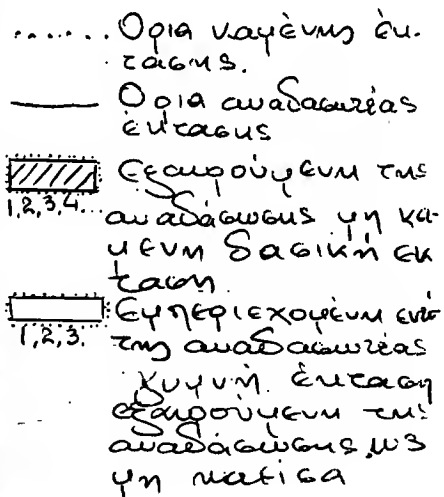 Όρια καμένης έκ-
τασης.
Όρια αναδασωτέας
έκτασης
Εξαιρούμενη της
1,2,3,4... αναδάσωσης μη κα-
μενη δασική εκ
ταση.
Εμπεριεχομένη εντός
1,2,3. της αναδασωτέας
γυμνή έκταση
εξαιρούμενη της
αναδάσωσης, ως
μη καείσα